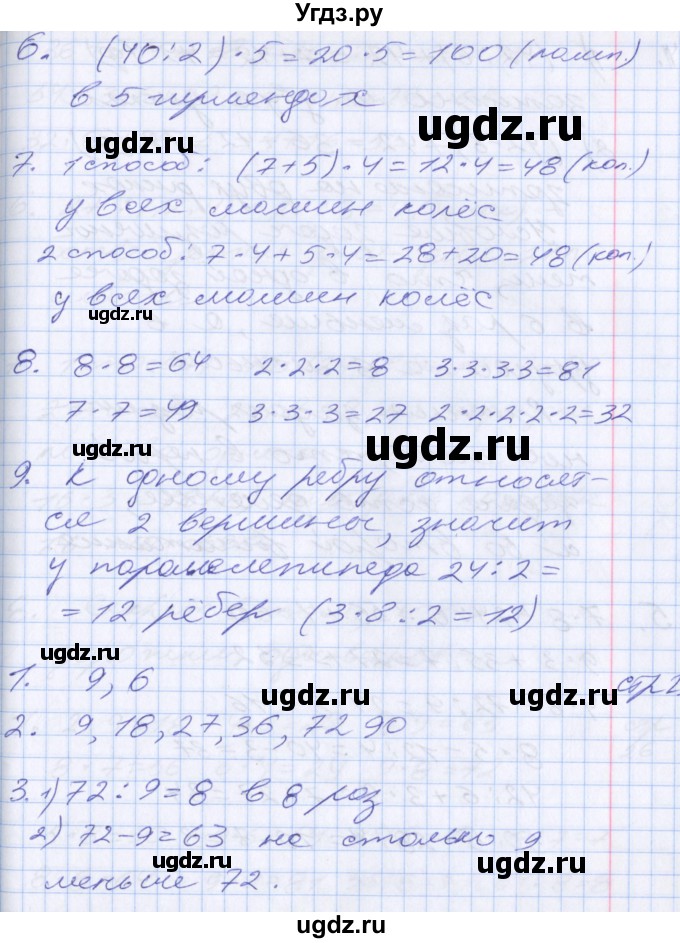 Угдз.ру
6. (40:2)·5=20·5=100 (ламп.)
в 5 гирлендах
ugdz.ru
ugdz.ru
7. 1 способ: (7+5)·4=12·4=48 (кол.)
у всех машин колёс
2 способ: 7·4+5·4=28+20=48 (кол.)
у всех машин колёс
ugdz.ru
ugdz.ru
8. 8·8=64 2·2·2=8 3·3·3·3=81
7·7=49 3·3·3=27 2·2·2·2·2=32
ugdz.ru
ugdz.ru
9. К одному ребру относят-
ся 2 вершины, значит
у параллелепипеда 24:2=
ugdz.ru
=12 рёбер (3·8:2=12)
ugdz.ru
1. 9, 6
стр
ugdz.ru
ugdz.ru
2. 9, 18, 27, 36, 72 90
3. 1) 72:9=8 в 8 раз
2) 72-9=63 на столько 9
ugdz.ru
ugdz.ru
меньше 72.
ugdz.ru